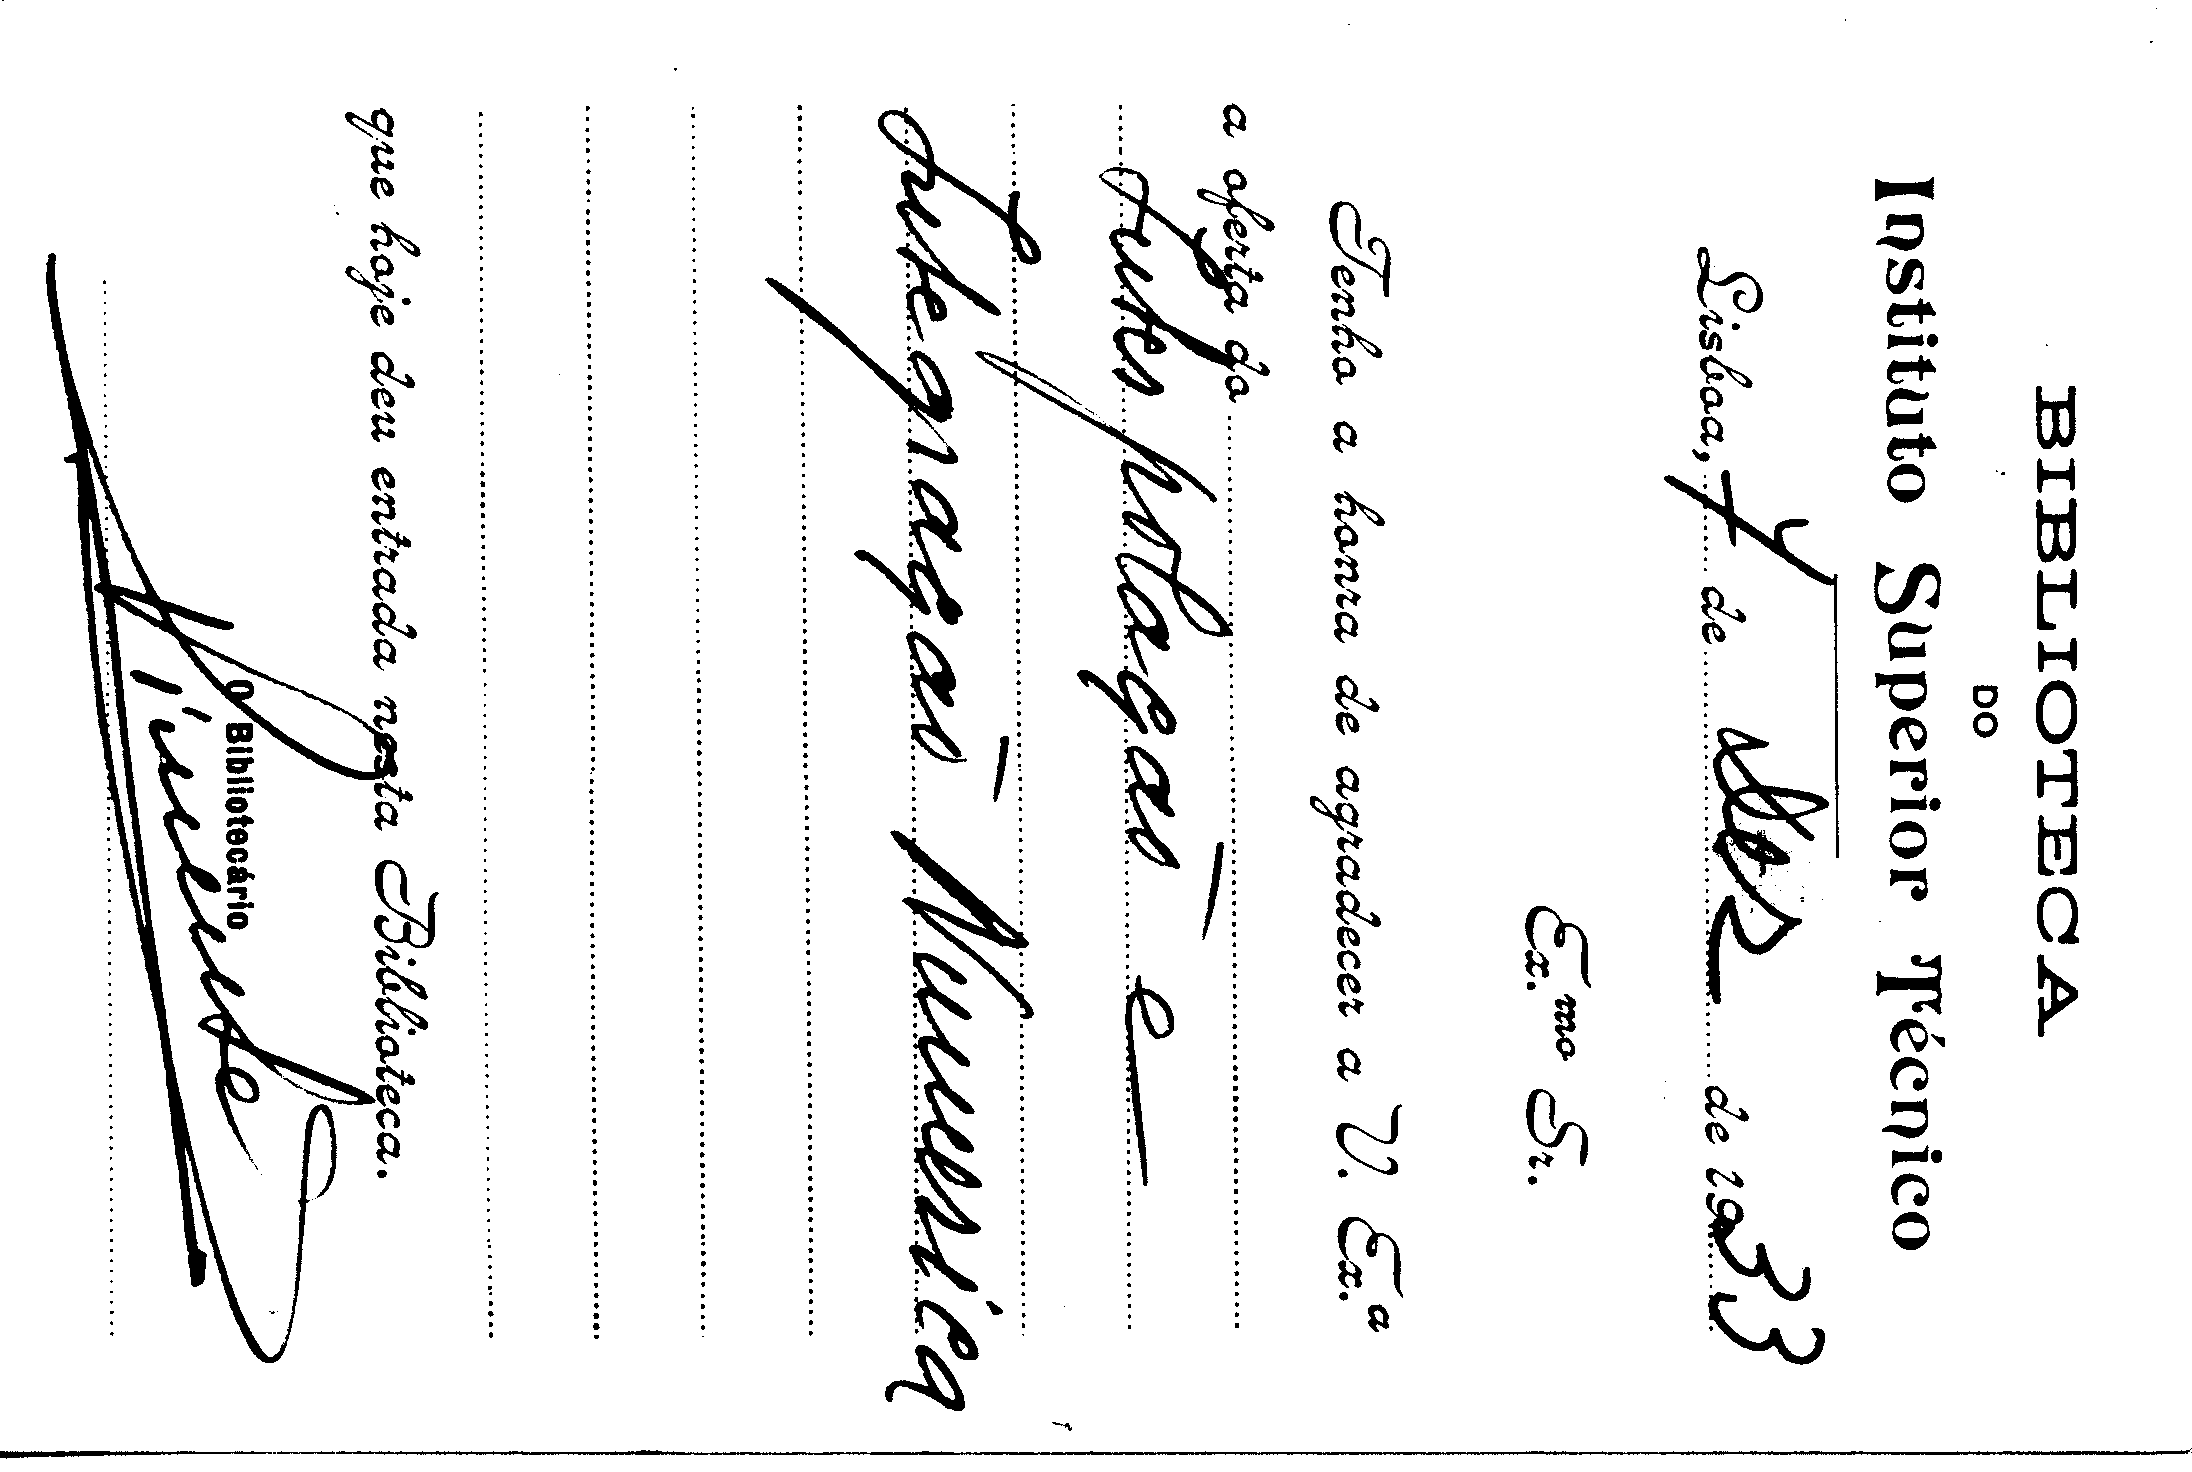 BIBLIOTECA
DO
Instituto Superior Técnico
Lisboa, 7 de de 1933
Ex.mo Sr.
Tenho a honra de agradecer a V. Ex.a
a oferta do
Interpolação e
Integração Numerica
que hoje deu entrada nesta Biblioteca.
O Bibliotecário